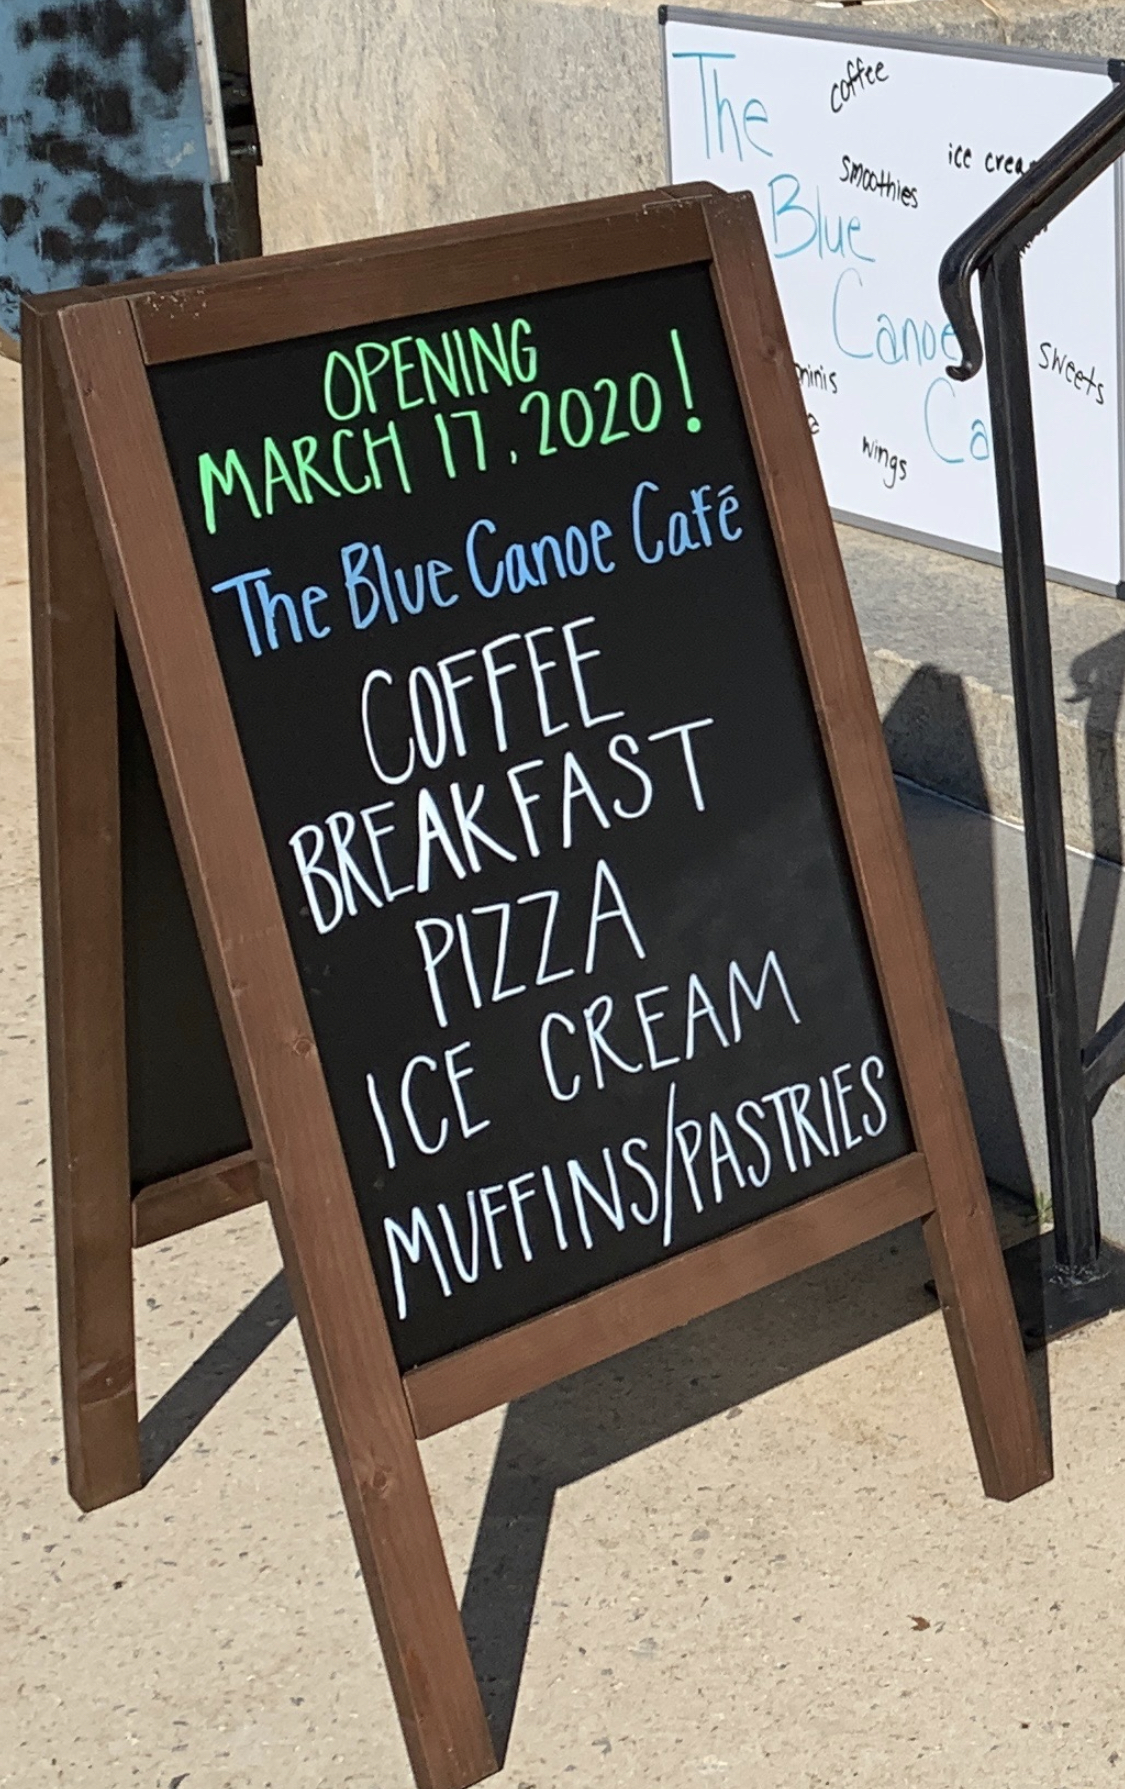 OPENING
MARCH 17, 2020!
The Blue Canoe Café
COFFEE
BREAKFAST
PIZZA
ICE CREAM
MUFFINS/PASTRIES
The
Blue
Canoe
Ca
coffee
smoothies
ice crea
sweets
wings